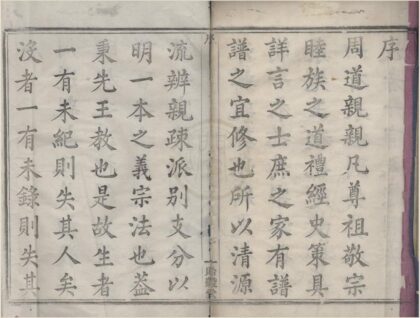 序
周道親親凡尊祖敬宗
睦族之道禮經史策具
詳言之士庶之家有譜
譜之宜修也所以清源
流辨親疎派別支分以
明一本之義宗法也蓋
秉先王教也是故生者
一有未紀則失其人矣
沒者一有未錄則失其
序